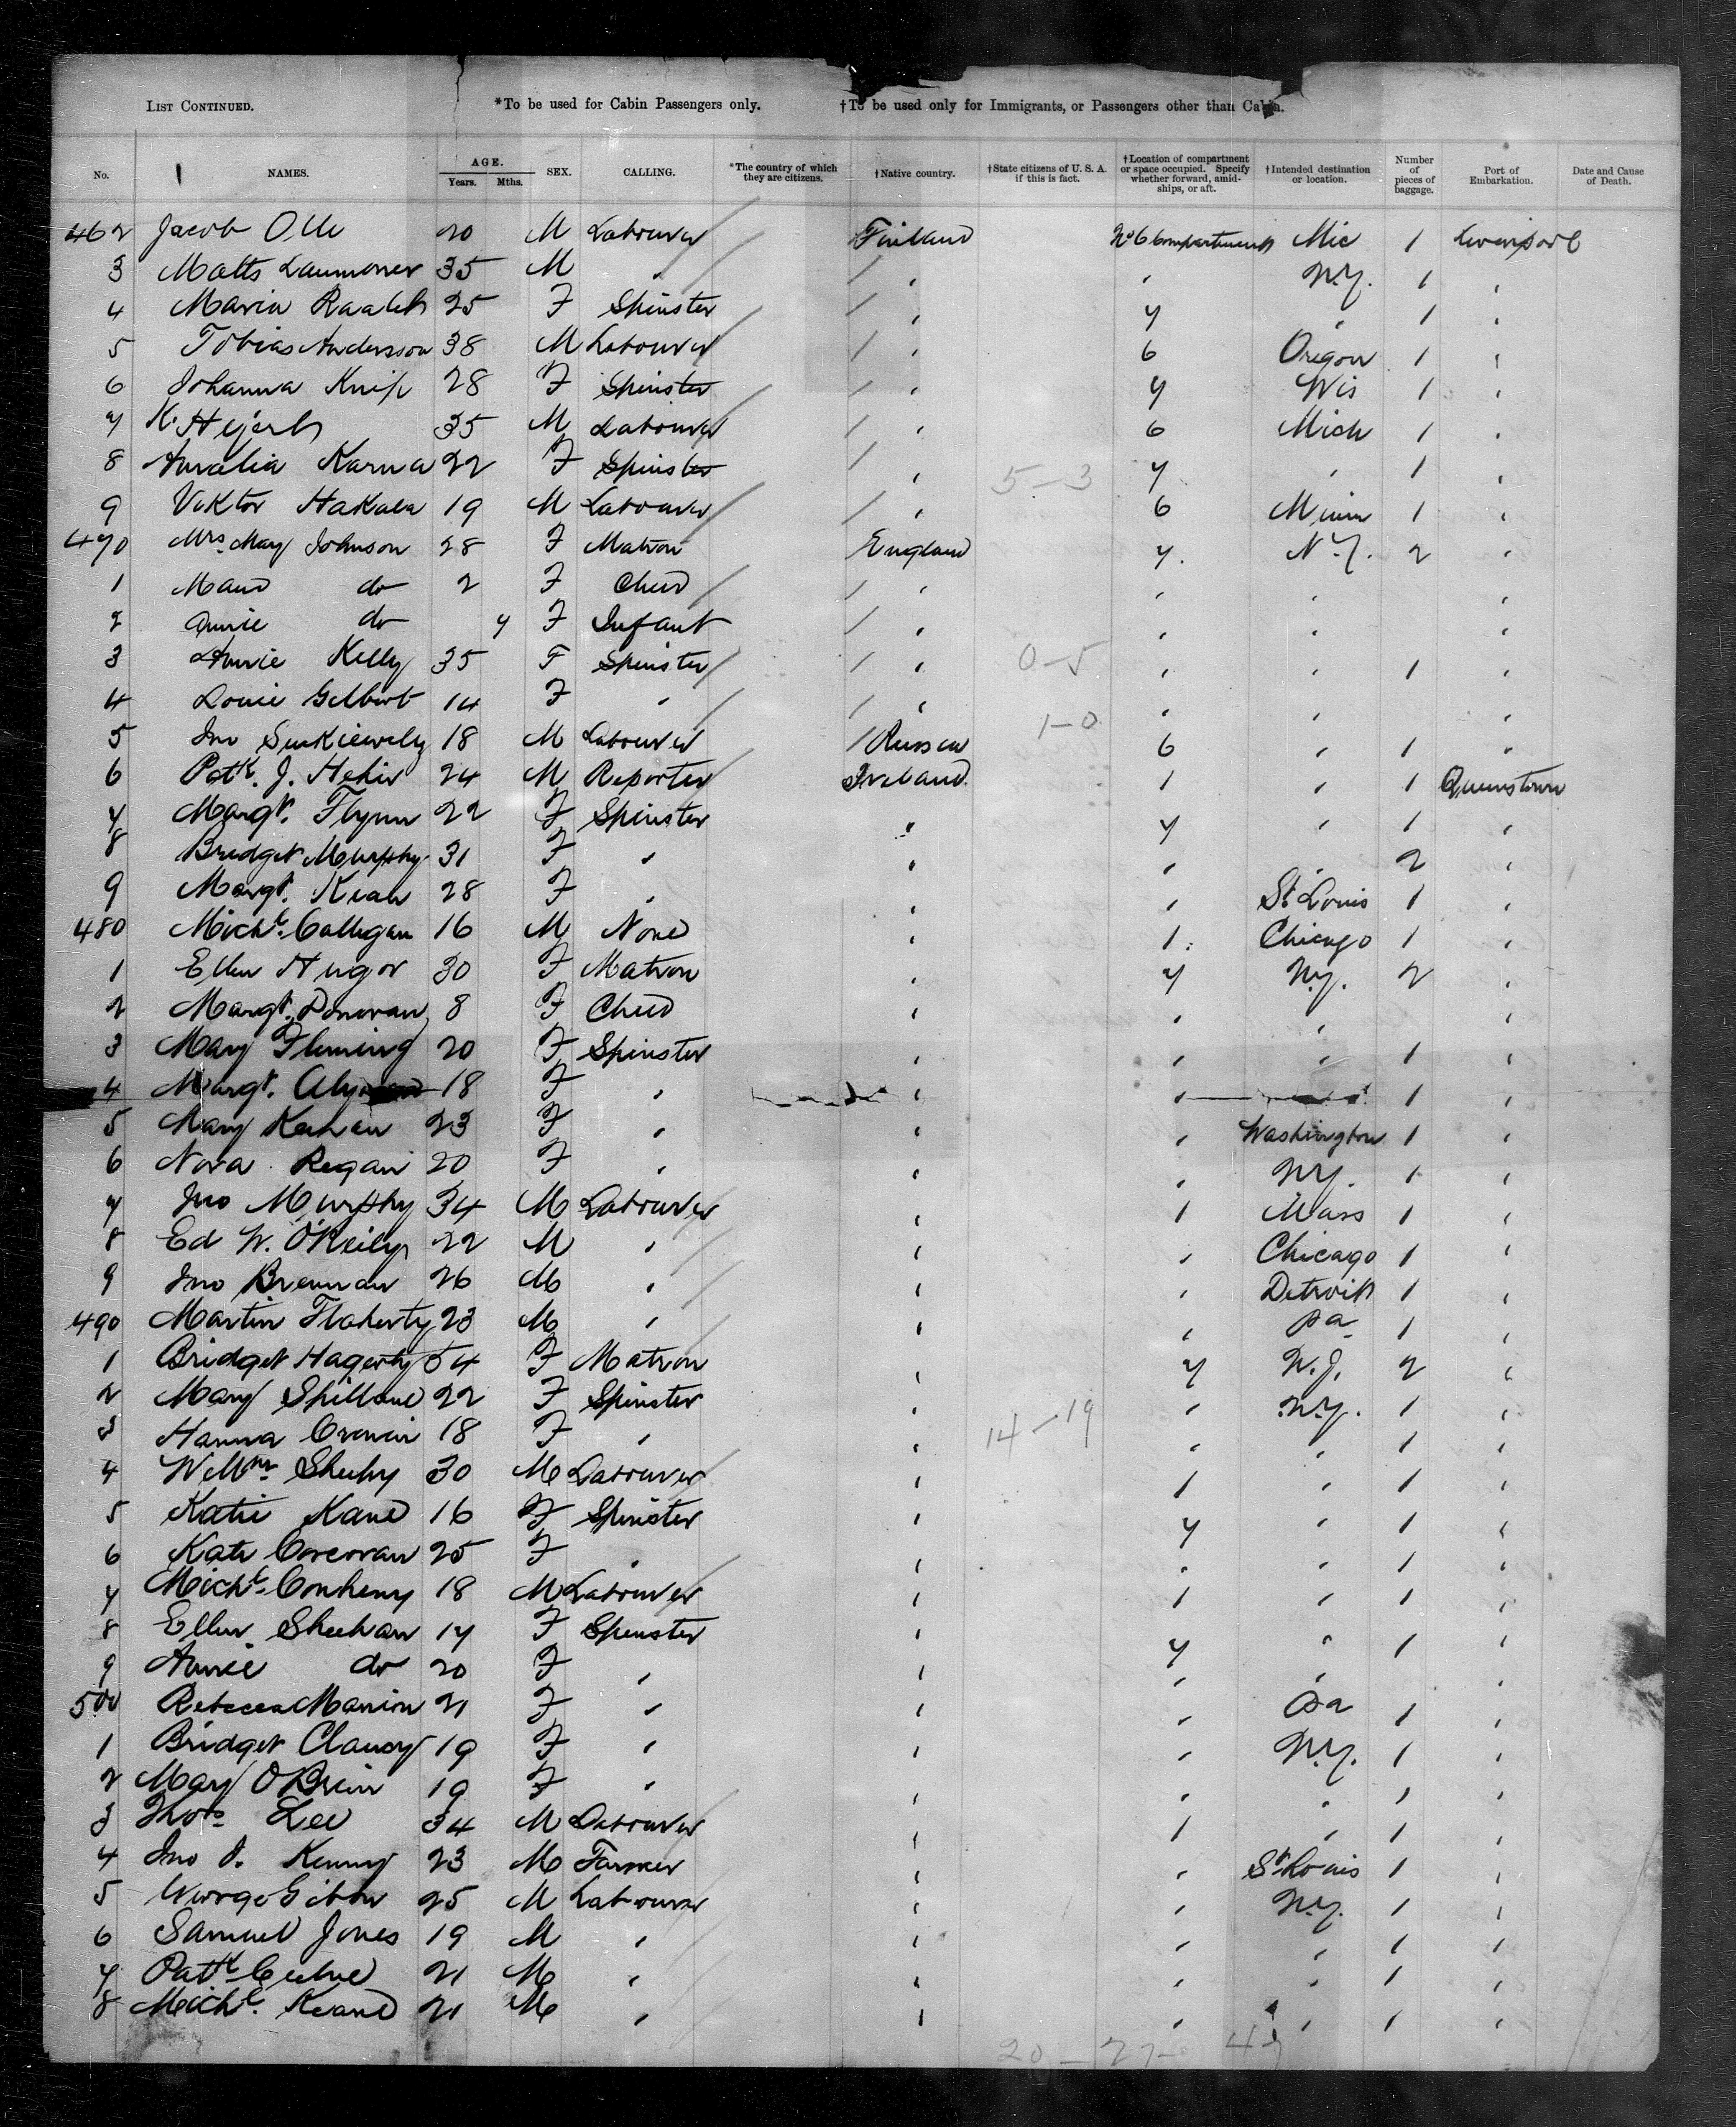 LIST CONTINUED. *To be used for Cabin Passengers only. †To be used only for Immigrants, or Passengers other than Cabin.
No. NAMES. AGE. Years. Mths. SEX. CALLING. *The country of which they are citizens. †Native country. †State citizens of U. S. A. if this is fact. †Location of compartment or space occupied. Specify whether forward, amidships, or aft. †Intended destination or location. Number of pieces of baggage. Port of Embarkation. Date and Cause of Death.
462 Jacob Olli 20 M Labourer Finland No 6 Compartment Mic 1 Liverpool
3 Matts 35 M " " " N.Y. 1 "
4 Maria 25 F Spinster " 7 " 1 "
5 Tobias Andersson 38 M Labourer " 6 Oregon 1 "
6 Johanna Knip 28 F Spinster " 7 Wis 1 "
7 K. 35 M Labourer " 6 Mich 1 "
8 Amalia Karna 22 F Spinster " 5-3 7 " 1 "
9 Viktor Hakala 19 M Labourer " 6 Minn 1 "
470 Mrs. May Johnson 28 F Matron England 7. N.Y. 2 "
1 Maud do 2 F Child " " " "
2 Annie do 7 F Infant " " " "
3 Annie Kelly 35 F Spinster " 0-5 " " 1 "
4 Louie Gilbert 14 F " " " " "
5 Jno 18 M Labourer Russia 1-0 6 " 1 "
6 Patk. J. Hehir 24 M Reporter Ireland. 1 " 1 Queenstown
7 Margt. Flynn 22 F Spinster " 7 " 1 "
8 Bridget Murphy 31 F " " " " 2 "
9 Margt. Kean 28 F " " " St. Louis 1 "
480 Michl. Colligan 16 M None " 1. Chicago 1 "
1 Ellen 30 F Matron " 7 N.Y. 2 "
2 Margt. Donovan 8 F Child " " " "
3 Mary Fleming 20 F Spinster " " " 1 "
4 Margt. 18 F " " " 1 "
5 Mary Keenan 23 F " " " Washington 1 "
6 Nora Regan 20 F " " " N.Y. 1 "
7 Jno Murphy 34 M Labourer " 1 Mass 1 "
8 Ed W. O'Reily 22 M " " " Chicago 1 "
9 Jno Brennan 26 M " " " Detroit 1 "
490 Martin Flaherty 23 M " " " Pa 1 "
1 Bridget Hagerty 54 F Matron " 7 N.J. 2 "
2 Mary Spillane 22 F Spinster " " N.Y. 1 "
3 Hanna Cronin 18 F " " 14-19 " " 1 "
4 Willm. Sheehy 30 M Labourer " 1 " 1 "
5 Katie Kane 16 F Spinster " 7 " 1 "
6 Kate Corcoran 25 F " " " " 1 "
7 Michl. Conheny 18 M Labourer " 1 " 1 "
8 Ellen Sheehan 17 F Spinster " 7 " 1 "
9 Annie do 20 F " " " " "
500 Rebecca Manion 21 F " " " Pa 1 "
1 Bridget Clancy 19 F " " " N.Y. 1 "
2 Mary O'Brien 19 F " " " " 1 "
3 Thos. Lee 34 M Labourer " 1 " 1 "
4 Jno J. Kenny 23 M Farmer " " St Louis 1 "
5 George 25 M Labourer " " N.Y. 1 "
6 Samuel Jones 19 M " " " " 1 "
7 Patk. 21 M " " " " 1 "
8 Michl. Keane 21 M " " " " 1 "